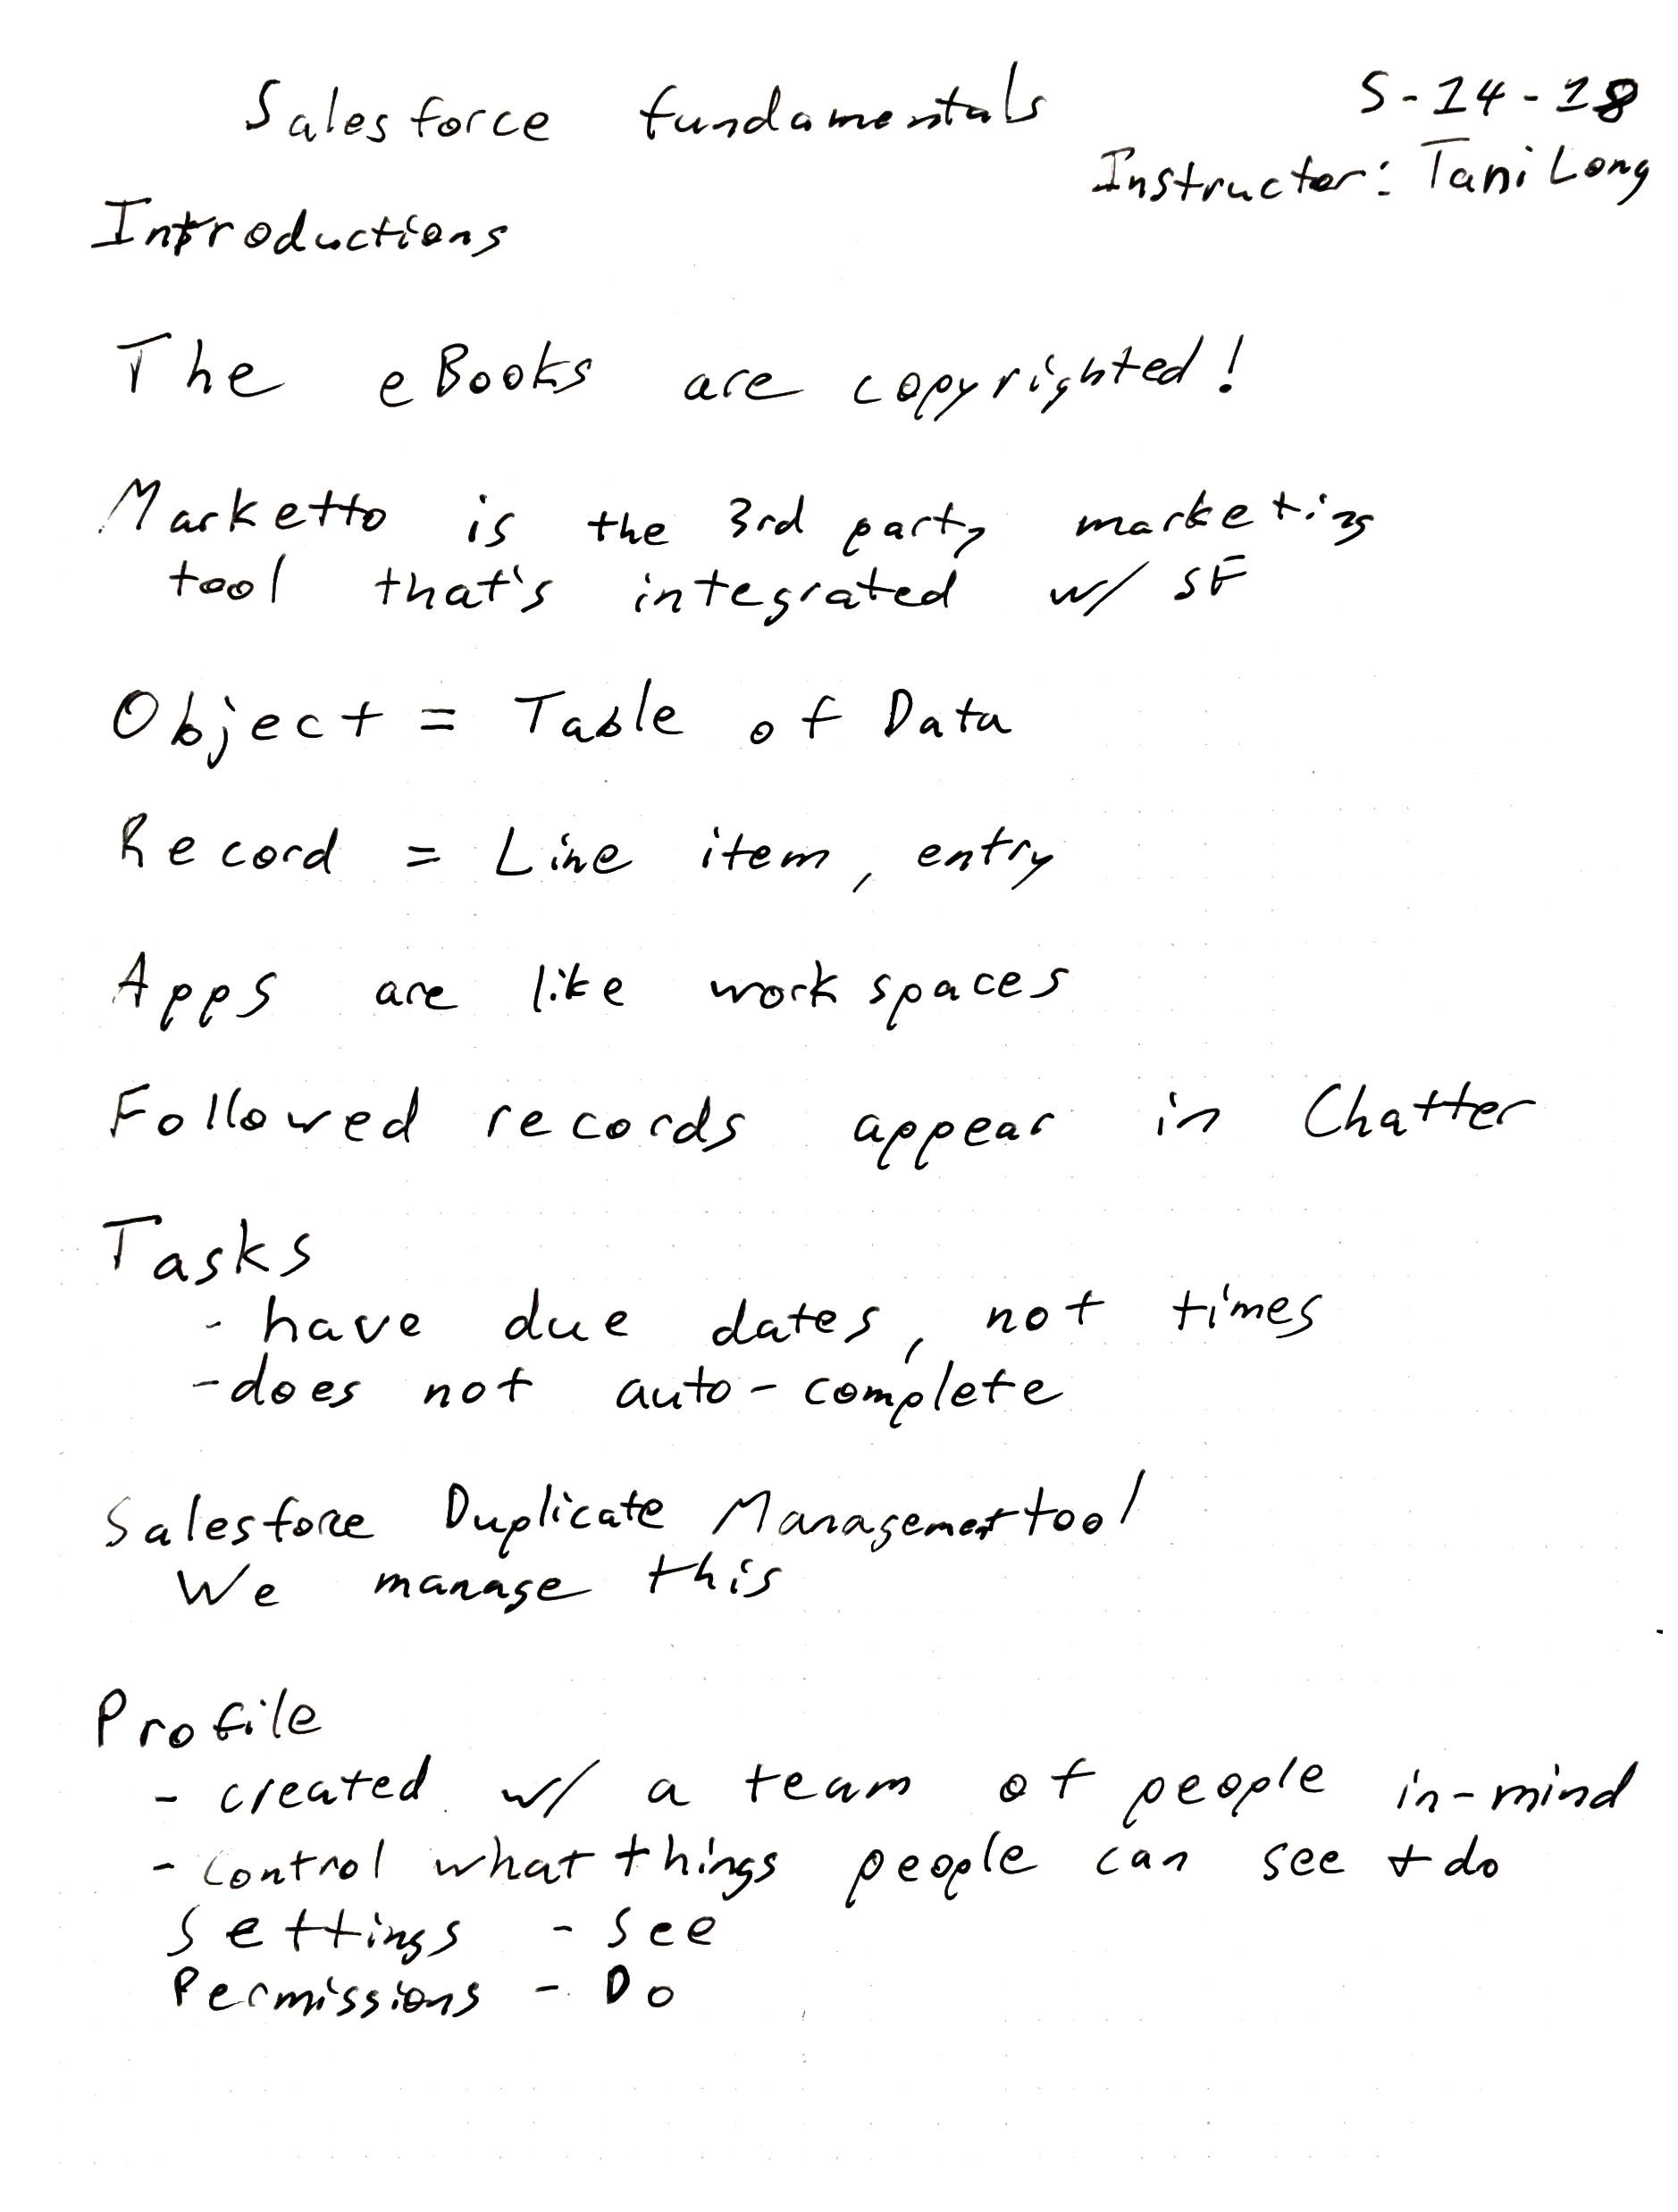 Salesforce fundamentals
5-14-18
Instructor: Tani Long
Introductions
The eBooks are copyrighted!
Marketto is the 3rd party marketing
tool that's integrated w/ SF
Object = Table of Data
Record = Line item, entry
Apps are like work spaces
Followed records appear in Chatter
Tasks
- have due dates, not times
- does not auto-complete
Salesforce Duplicate Management tool
We manage this
Profile
- created w/ a team of people in-mind
- control what things people can see + do
Settings - See
Permissions - Do